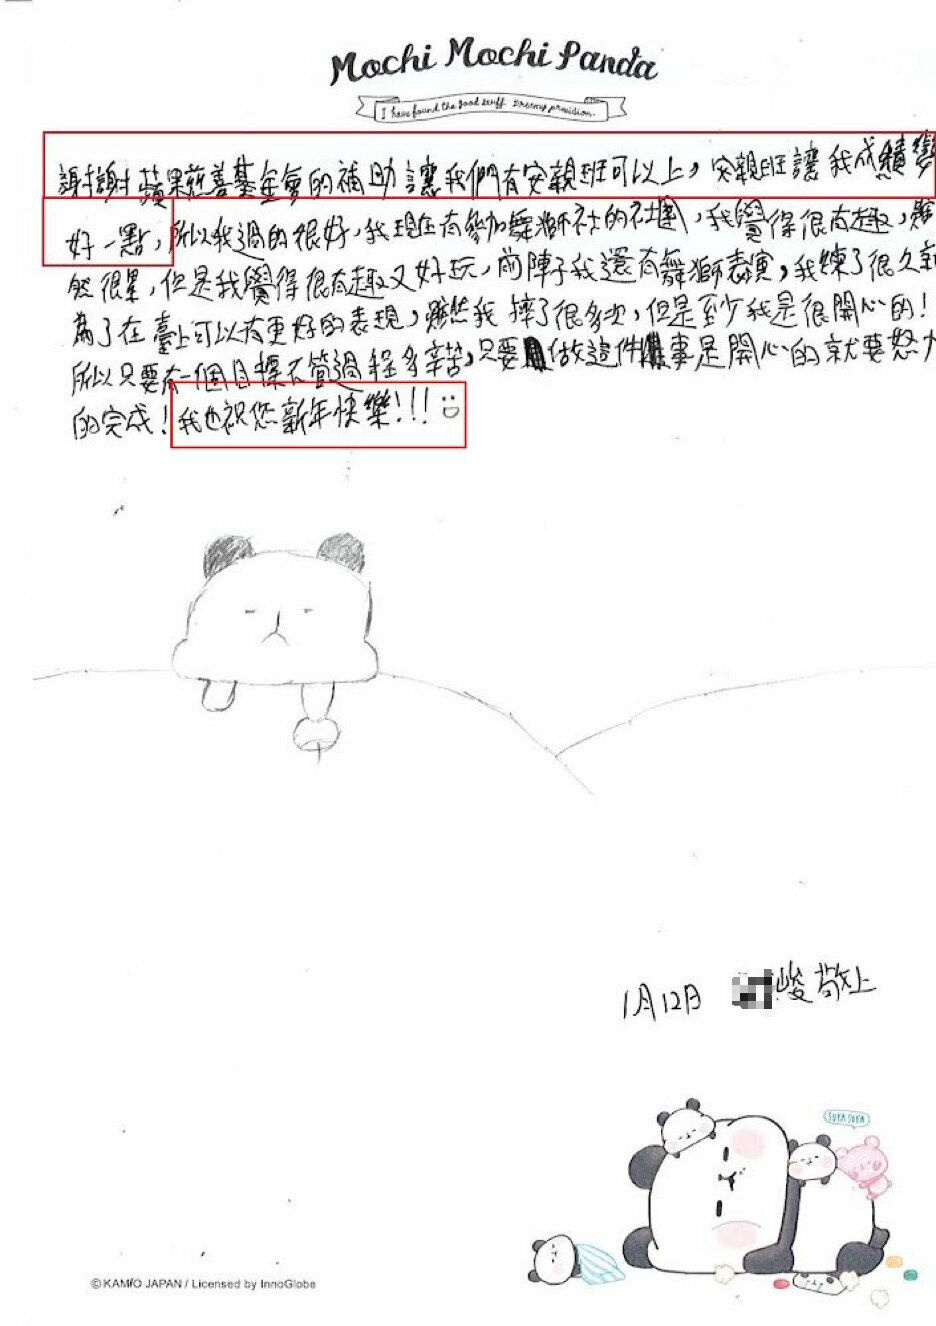 Mochi Mochi Panda
I have found the good stuff. Dreamy provision.
謝謝蘋果慈善基金會的補助讓我們有安親班可以上，安親班讓我成績變
好一點，所以我過的很好，我現在有參加舞獅社的社團，我覺得很有趣，雖
然很累，但是我覺得很有趣又好玩，前陣子我還有舞獅表演，我練了很久
為了在臺上可以有更好的表現，雖然我摔了很多次，但是至少我是很開心的！
所以只要有一個目標不管過程多辛苦，只要做這件事是開心的就要努力
的完成！我也祝您新年快樂!!!
1月12日 峻敬上
SUYA SUYA
© KAMIO JAPAN / Licensed by InnoGlobe